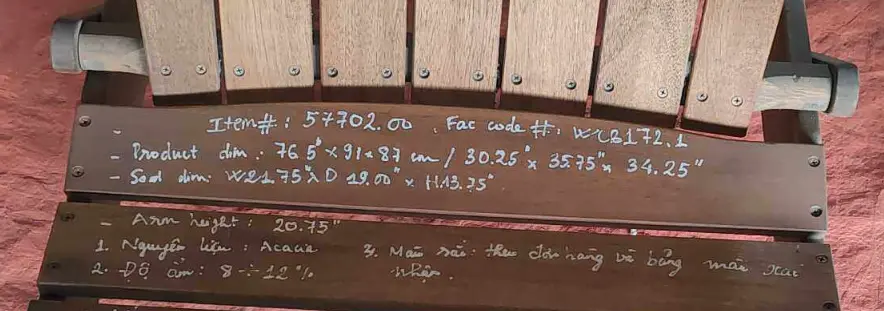 - Item#: 57702.00 . Fac code #: WCB172.1
- Product dim: 76.5 x 91 x 87 cm / 30.25" x 35.75" x 34.25"
- Seat dim: W21.75" x D 19.00" x H13.75"
- Arm height: 20.75"
1. Nguyên liệu: Acacia
2. Độ ẩm: 8 ÷ 12%
3. Màu sắc: theo đơn hàng và bảng màu xác
nhận.